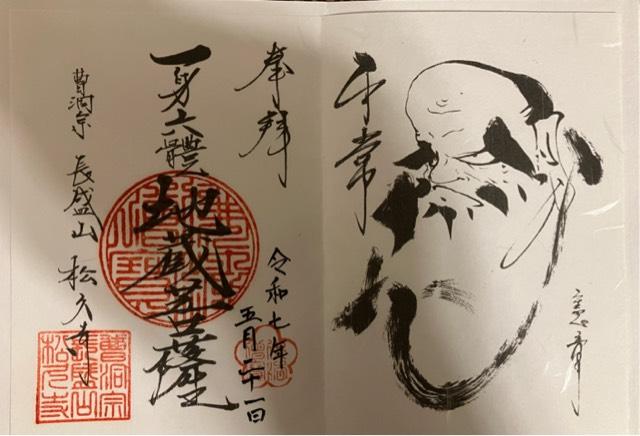 平常心
奉拝
令和七年
五月二十一日
一身六體
地蔵菩薩
曹洞宗 長盛山 松久寺
曹洞宗
長盛山
松久寺